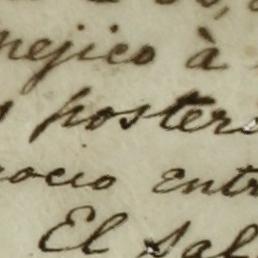 mejico à
posteri
ocio entr
El sal